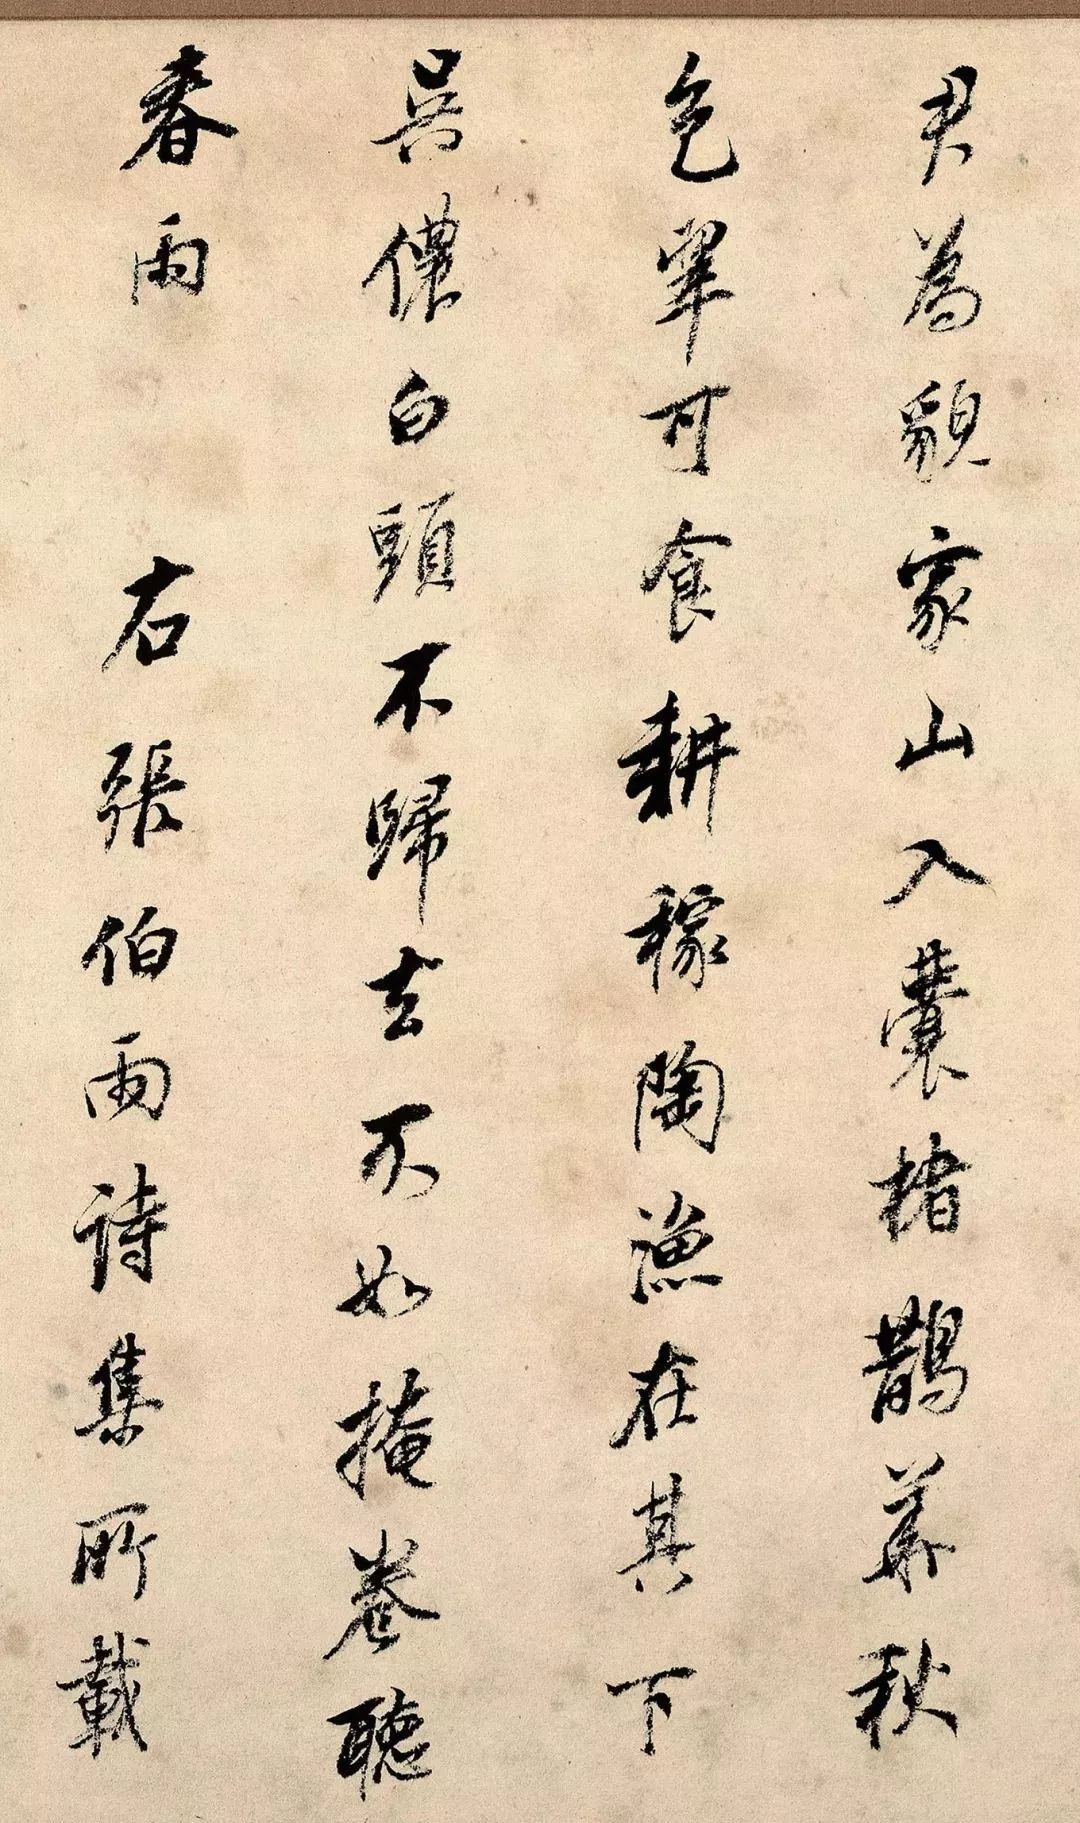 君為貌家山入囊楮鵲華秋
色翠可食耕稼陶漁在其下
吳儂白頭不歸去不如掩卷聽
春雨 右張伯雨詩集所載